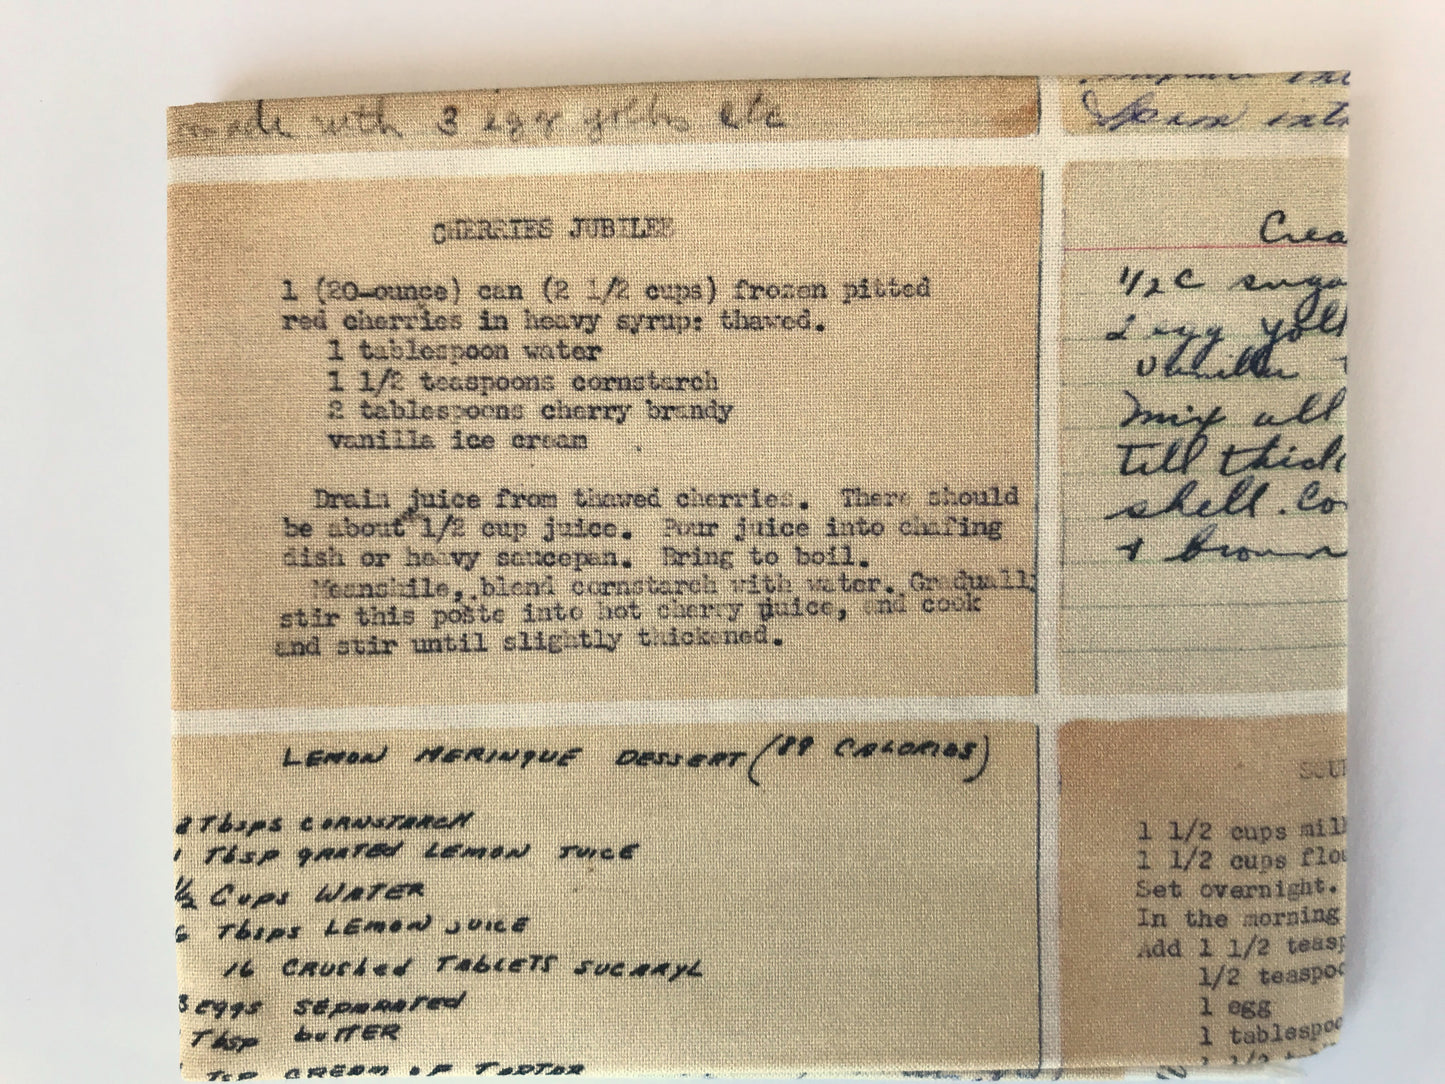 made with 3 egg yolks etc
CHERRIES JUBILEE
1 (20-ounce) can (2 1/2 cups) frozen pitted
red cherries in heavy syrup; thawed.
1 tablespoon water
1 1/2 teaspoons cornstarch
2 tablespoons cherry brandy
vanilla ice cream
Drain juice from thawed cherries. There should
be about 1/2 cup juice. Pour juice into chafing
dish or heavy saucepan. Bring to boil.
Meanwhile, blend cornstarch with water. Gradually
stir this paste into hot cherry juice, and cook
and stir until slightly thickened.
Crea
1/2 C suga
2 egg yolk
mix all
till thick
shell. Co
+ brown
LEMON MERINgUE DESSERT (89 CALORIES)
2 Tbsps CORNSTARCH
1 Tbsp gRATEd LEMON JUICE
1/2 Cups WATER
6 Tbsps LEMON JUICE
16 CRUShed TABLETS SUCARYL
3 eggs SEPARATEd
Tbsp buTTER
TSP CREAM OF TARTAR
SOU
1 1/2 cups mil
1 1/2 cups flou
Set overnight.
In the morning
Add 1 1/2 teasp
1/2 teaspoo
1 egg
1 tablespoo